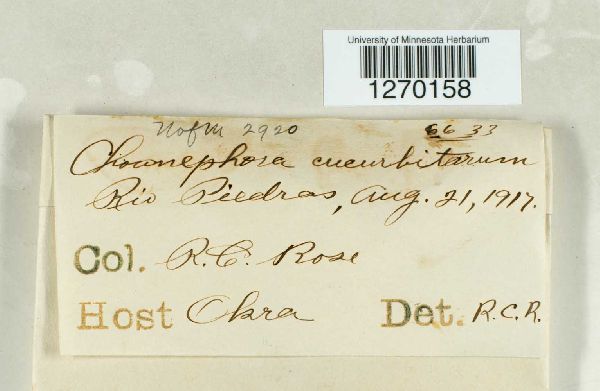 University of Minnesota Herbarium
1270158
UofM 2920
6633
Choanephora cucurbitarum
Rio Piedras, Aug. 21, 1917.
Col. R.C. Rose
Host Okra Det. R.C.R.